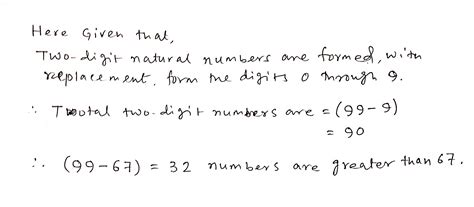 Here Given that,
Two-digit natural numbers are formed, with
replacement, form the digits 0 through 9.
∴ Total two-digit numbers are = (99-9)
= 90
∴ (99-67) = 32 numbers are greater than 67.